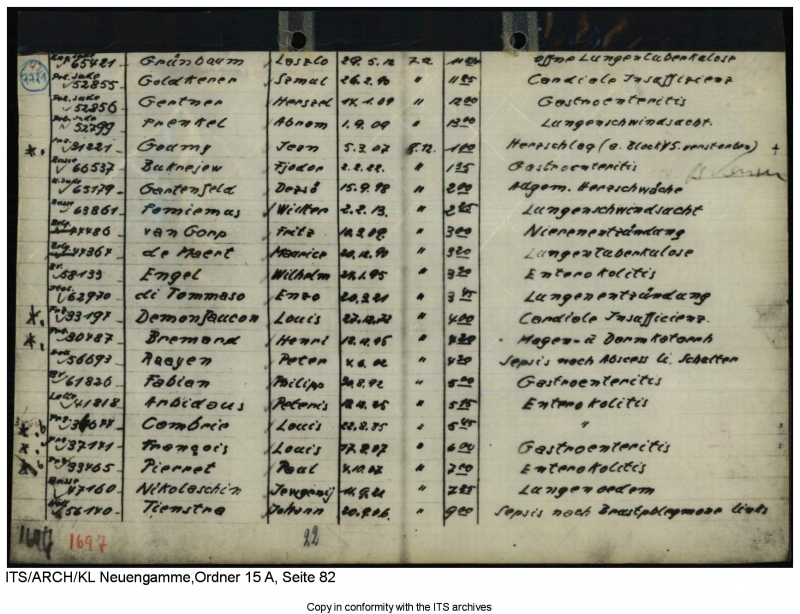 65421 Grünbaum Laszlo 29.5.12 7.12. offne Lungentuberkulose
2221 Pol. Jude 52855 Goldkerer Szmul 26.2.90 " 11 25 Cardiale Insuffizienz
Pol. Jude 52856 Gertner Herszel 14.1.09 " 12 00 Gastroenteritis
52799 Frenkel Abram 1.9.09 " 13 00 Lungenschwindsucht.
31221 Goumy Jean 5.3.07 8.12. 1 00 Herzschlag (a. Block verstorben) +
Russe 60537 Bukrejew Fjodor 2.2.22. " 1 35 Gastroenteritis
65179 Gartenfeld Dezsö 15.9.98 " 2 00 Allgem. Herzschwäche
Russe 63861 Fomiemus Wilktor 2.2.13. " 2 25 Lungenschwindsacht
Belg. 44486 van Gorp Fritz " 3 00 Nierenentzündung
Belg. 47364 de Maert Maurice 20.12.90 " 3 20 Lungentuberkulose
58133 Engel Wilhelm 25.1.95 " 3 30 Enterokolitis
Ital. 62970 di Tommaso Enzo 20.3.21 " 3 45 Lungenentzündung
Frz. 33197 Demonfaucon Louis 27.12.77 " 4 00 Cardiale Insufficienz.
30487 Bremard Henri 18.12.95 " 4 20 Magen- u Darmkatarrh
56693 Raayen Peter 4.6.02 " 4 20 Sepsis nach Abscess li. Schulter
BV 61826 Fabian Philipp 20.8.92 " 5 00 Gastroenteritis
Lette 41818 Arbidaus Peteris " 5 15 Enterokolitis
Frz. Cambrie Louis 22.8.95 " 5 45 "
Frz. 37141 François Louis 17.8.07 " 6 00 Gastroenteritis
Frz. 33465 Pierret Paul 4.10.07 " 7 00 Enterokolitis
Russe 47160 Nikolaschin Jewgenij 11.9.21 " 7 25 Lungenoedem
56140 Tienstra Johann 20.9.06. " 9 00 Sepsis nach Brustphlegmone links
1697 1697 22
ITS/ARCH/KL Neuengamme,Ordner 15 A, Seite 82
Copy in conformity with the ITS archives